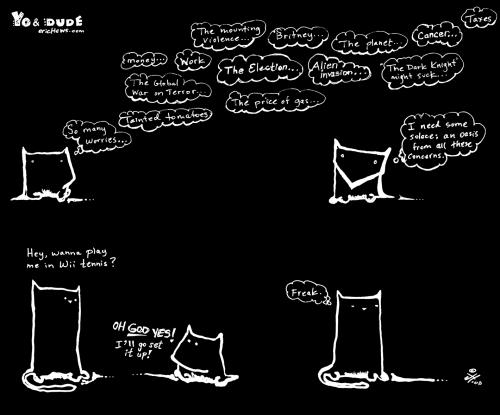 YO & DUDE
ericHews.com
Taxes
The mounting
violence...
Britney...
The planet...
Cancer...
money...
Work
The Election...
Alien
invasion...
"The Dark Knight"
might suck...
The Global
War on Terror...
The price of gas...
Tainted tomatoes
So many
worries...
I need some
solace; an oasis
from all these
concerns.
Hey, wanna play
me in Wii tennis?
OH GOD YES!
I'll go set
it up!
Freak.